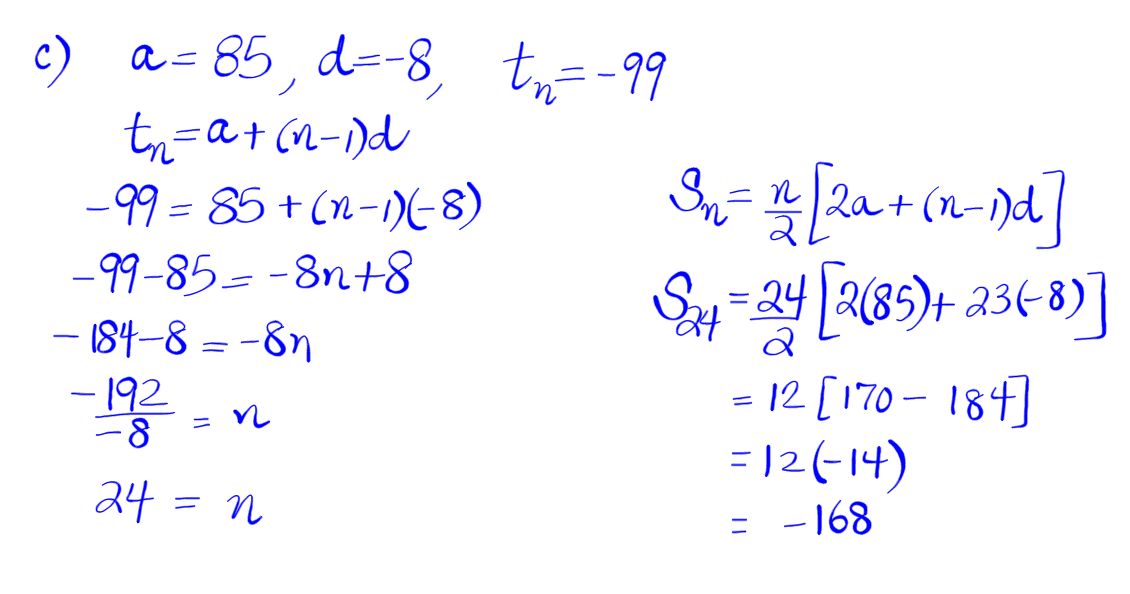 c) a = 85, d = -8, tₙ = -99
tₙ = a + (n-1)d
-99 = 85 + (n-1)(-8)
-99-85 = -8n+8
-184-8 = -8n
-192/-8 = n
24 = n
Sₙ = n/2 [2a + (n-1)d]
S₂₄ = 24/2 [2(85) + 23(-8)]
= 12 [170 - 184]
= 12(-14)
= -168